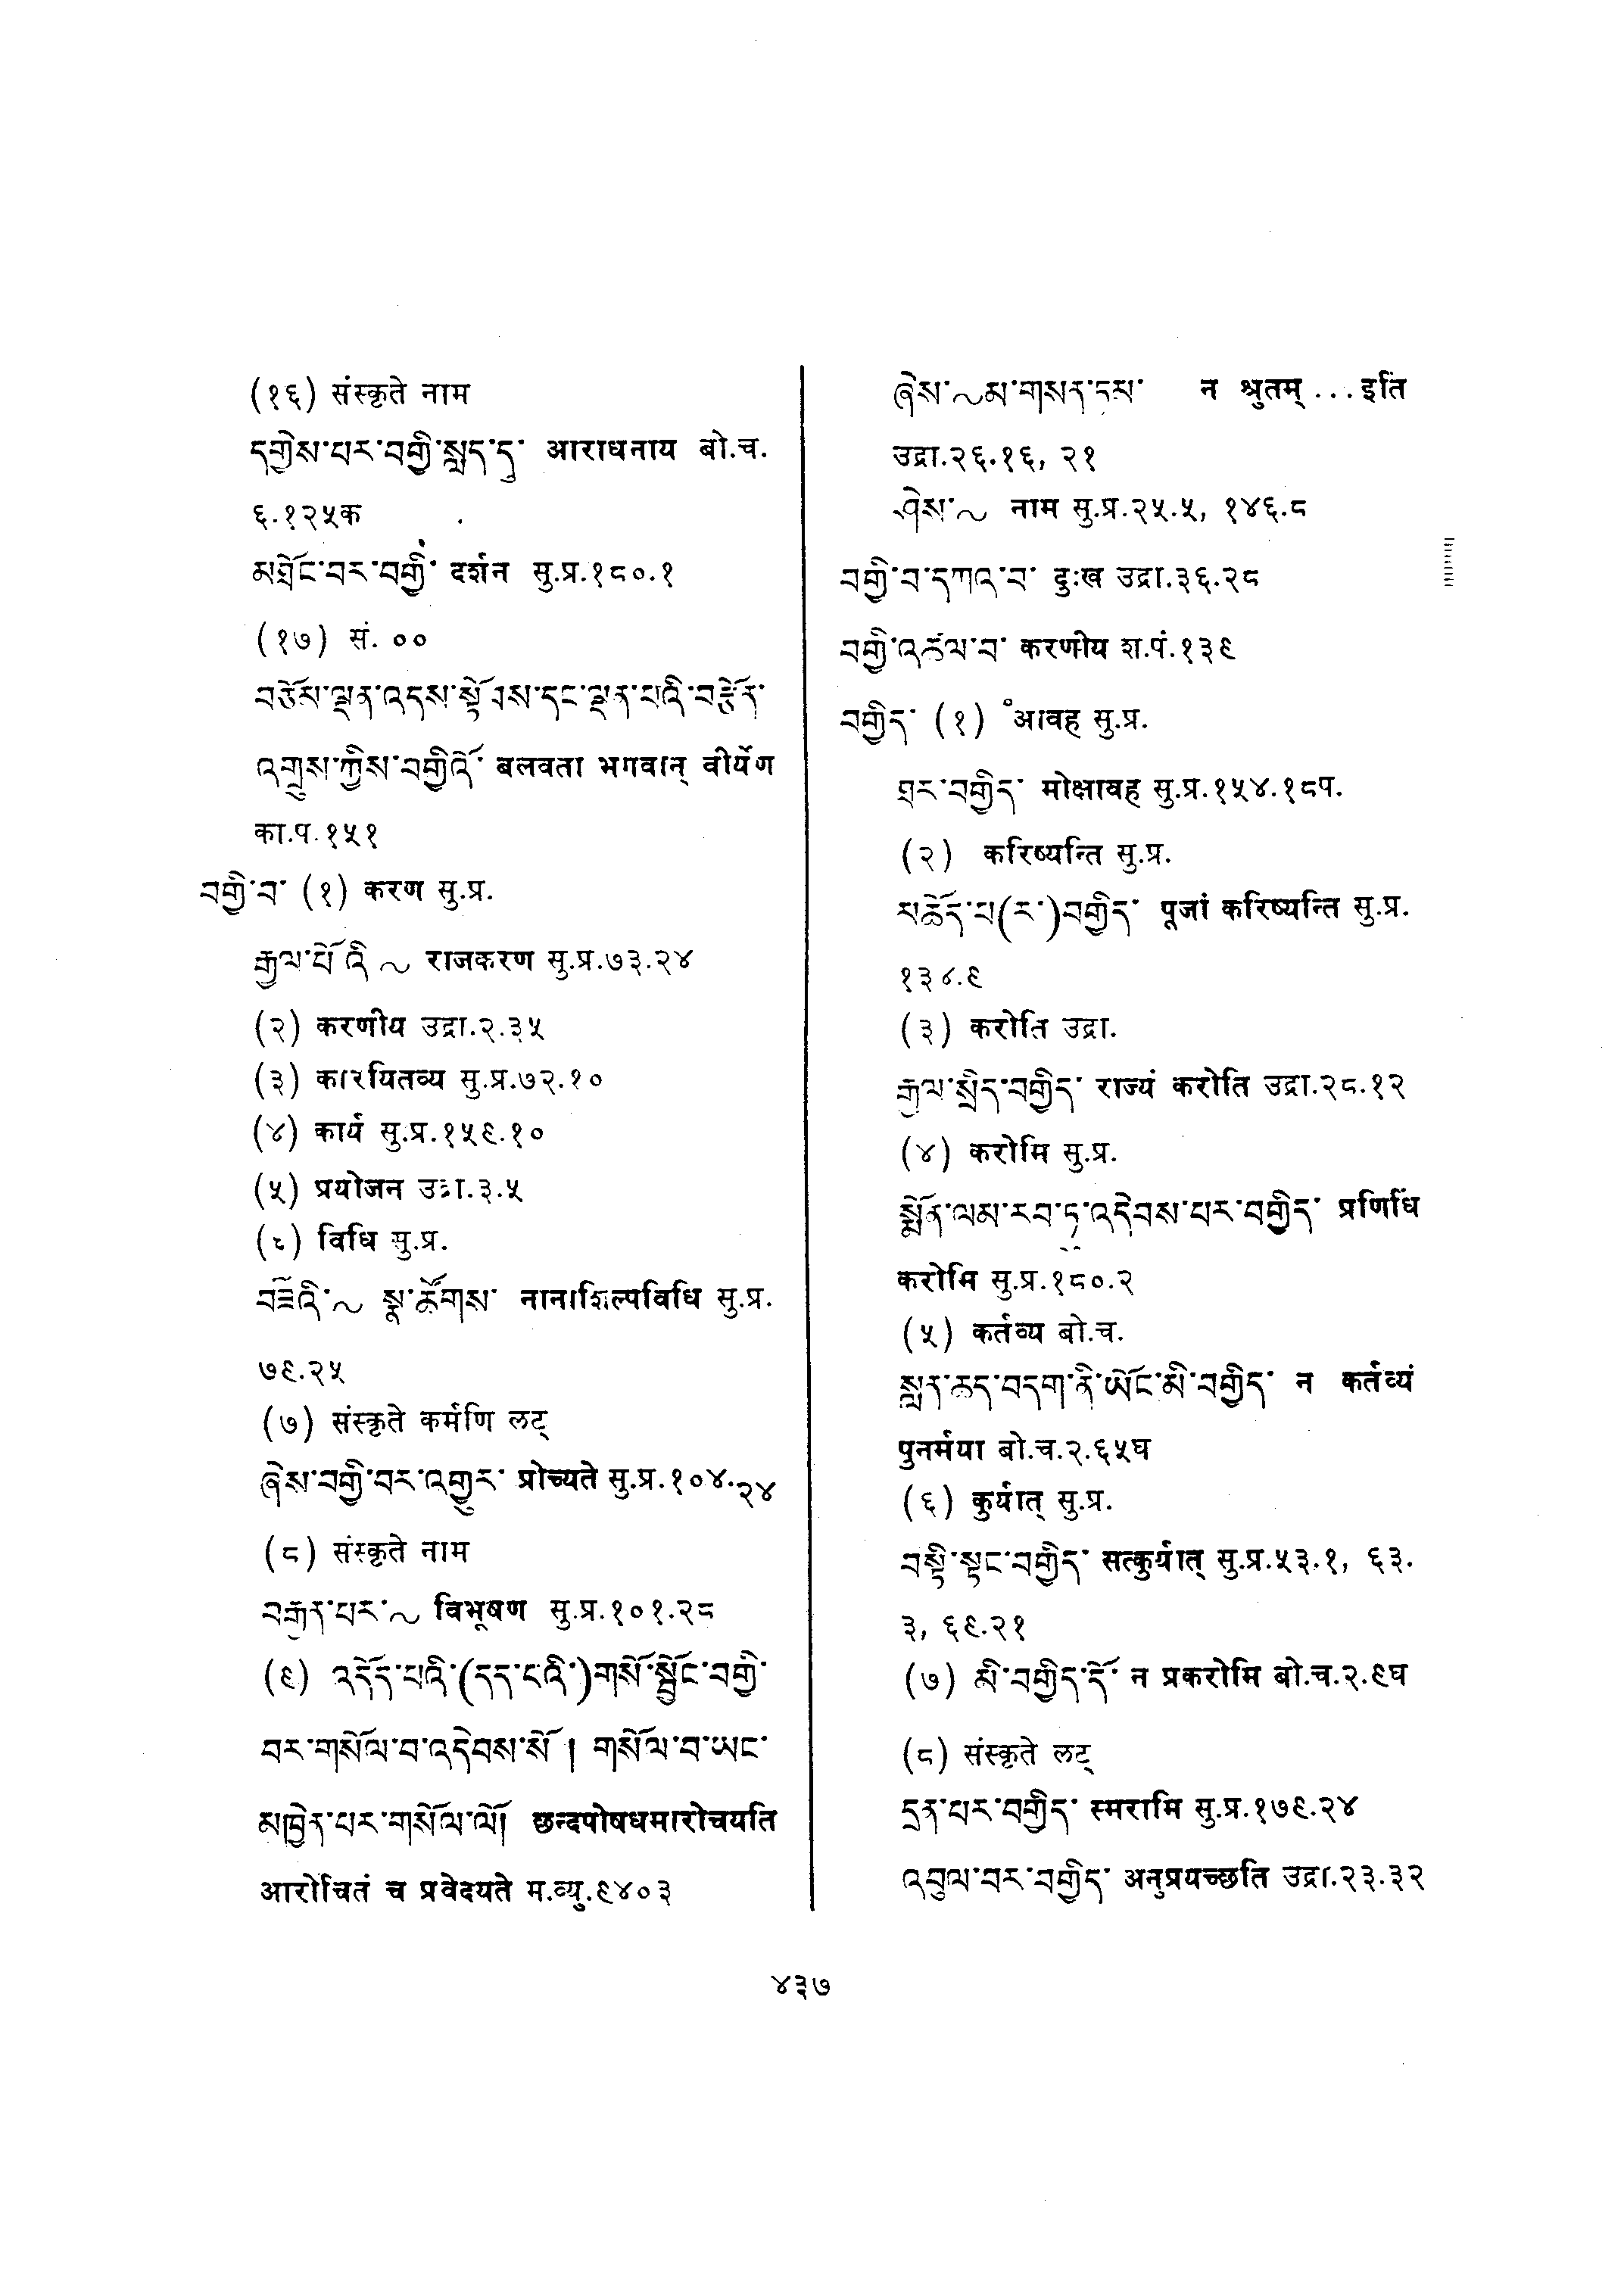 (१६) संस्कृते नाम
དགྱེས་པར་བགྱི་སླད་དུ་ आराधनाय बो.च.
६.१२५क
མཐོང་བར་བགྱི་ दर्शन सु.प्र.१८०.१
(१७) सं. ००
བཅོམ་ལྡན་འདས་སྟོབས་དང་ལྡན་པའི་བརྩོན་
འགྲུས་ཀྱིས་བགྱིའོ་ बलवता भगवान् वीर्येण
का.प.१५१
བགྱི་བ་ (१) करण सु.प्र.
རྒྱལ་པོའི ~ राजकरण सु.प्र.७३.२४
(२) करणीय उद्रा.२.३५
(३) कारयितव्य सु.प्र.७२.१०
(४) कार्य सु.प्र.१५९.१०
(५) प्रयोजन उद्रा.३.५
(६) विधि सु.प्र.
བཟོའི་~ སྣ་ཚོགས་ नानाशिल्पविधि सु.प्र.
७९.२५
(७) संस्कृते कर्मणि लट्
ཞེས་བགྱི་བར་འགྱུར་ प्रोच्यते सु.प्र.१०४.२४
(८) संस्कृते नाम
བརྒྱན་པར་~ विभूषण सु.प्र.१०१.२८
(९) འདོད་པའི་(དད་པའི་)གསོ་སྦྱོང་བགྱི་
བར་གསོལ་བ་འདེབས་སོ། གསོལ་བ་ཡང་
མཁྱེན་པར་གསོལ་ལོ། छन्दपोषधमारोचयति
आरोचितं च प्रवेदयते म.व्यु.९४०३
ཞེས་~མ་གསན་ཏམ་ न श्रुतम् ...इति
उद्रा.२६.१६, २१
ཤེས་~ नाम सु.प्र.२५.५, १४६.८
བགྱི་བ་དཀའ་བ་ दुःख उद्रा.३६.२८
བགྱི་འཚལ་བ་ करणीय श.पं.१३९
བགྱིད་ (१) ॰आवह सु.प्र.
ཐར་བགྱིད་ मोक्षावह सु.प्र.१५४.१८प.
(२) करिष्यन्ति सु.प्र.
མཆོད་པ(ར་)བགྱིད་ पूजां करिष्यन्ति सु.प्र.
१३४.९
(३) करोति उद्रा.
རྒྱལ་སྲིད་བགྱིད་ राज्यं करोति उद्रा.२८.१२
(४) करोमि सु.प्र.
སྨོན་ལམ་རབ་ཏུ་འདེབས་པར་བགྱིད་ प्रणिधिं
करोमि सु.प्र.१८०.२
(५) कर्तव्य बो.च.
སླན་ཆད་བདག་ནི་ཡོང་མི་བགྱིད་ न कर्तव्यं
पुनर्मया बो.च.२.६५घ
(६) कुर्यात् सु.प्र.
བསྟི་སྟང་བགྱིད་ सत्कुर्यात् सु.प्र.५३.१, ६३.
३, ६९.२१
(७) མི་བགྱིད་དོ་ न प्रकरोमि बो.च.२.९घ
(८) संस्कृते लट्
དྲན་པར་བགྱིད་ स्मरामि सु.प्र.१७९.२४
འབུལ་བར་བགྱིད་ अनुप्रयच्छति उद्रा.२३.३२
४३७